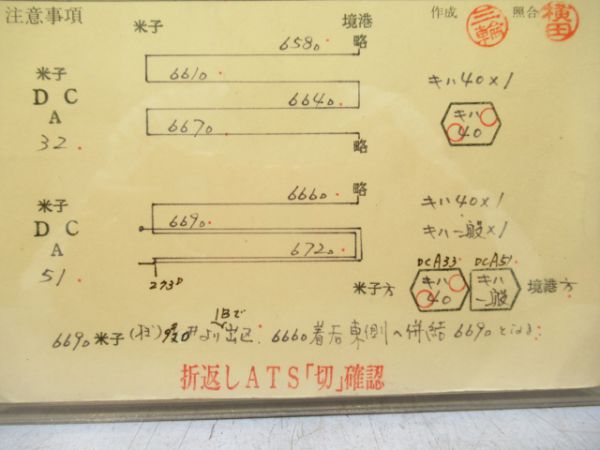 注意事項
作成 三輪 照合 横田
米子 境港
658D 略
米子
DC
A
32.
661D
664D
667D
略
キハ40×1
キハ
40
米子
DC
A
51
666D 略
669D
672D
273D
キハ40×1
キハ一般×1
DCA33 DCA51
米子方 キハ 40 キハ 一般 境港方
1Bで
669D 米子 より出区. 666D着后東側へ併結 669Dとなる.
折返しATS「切」確認